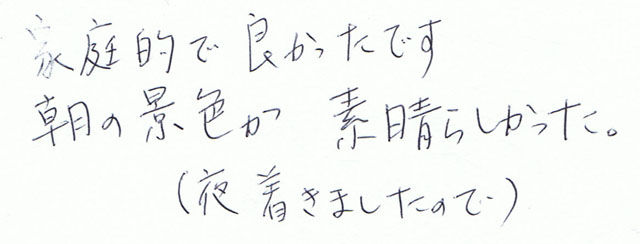 家庭的で良かったです
朝の景色が 素晴らしかった。
(夜着きましたので)